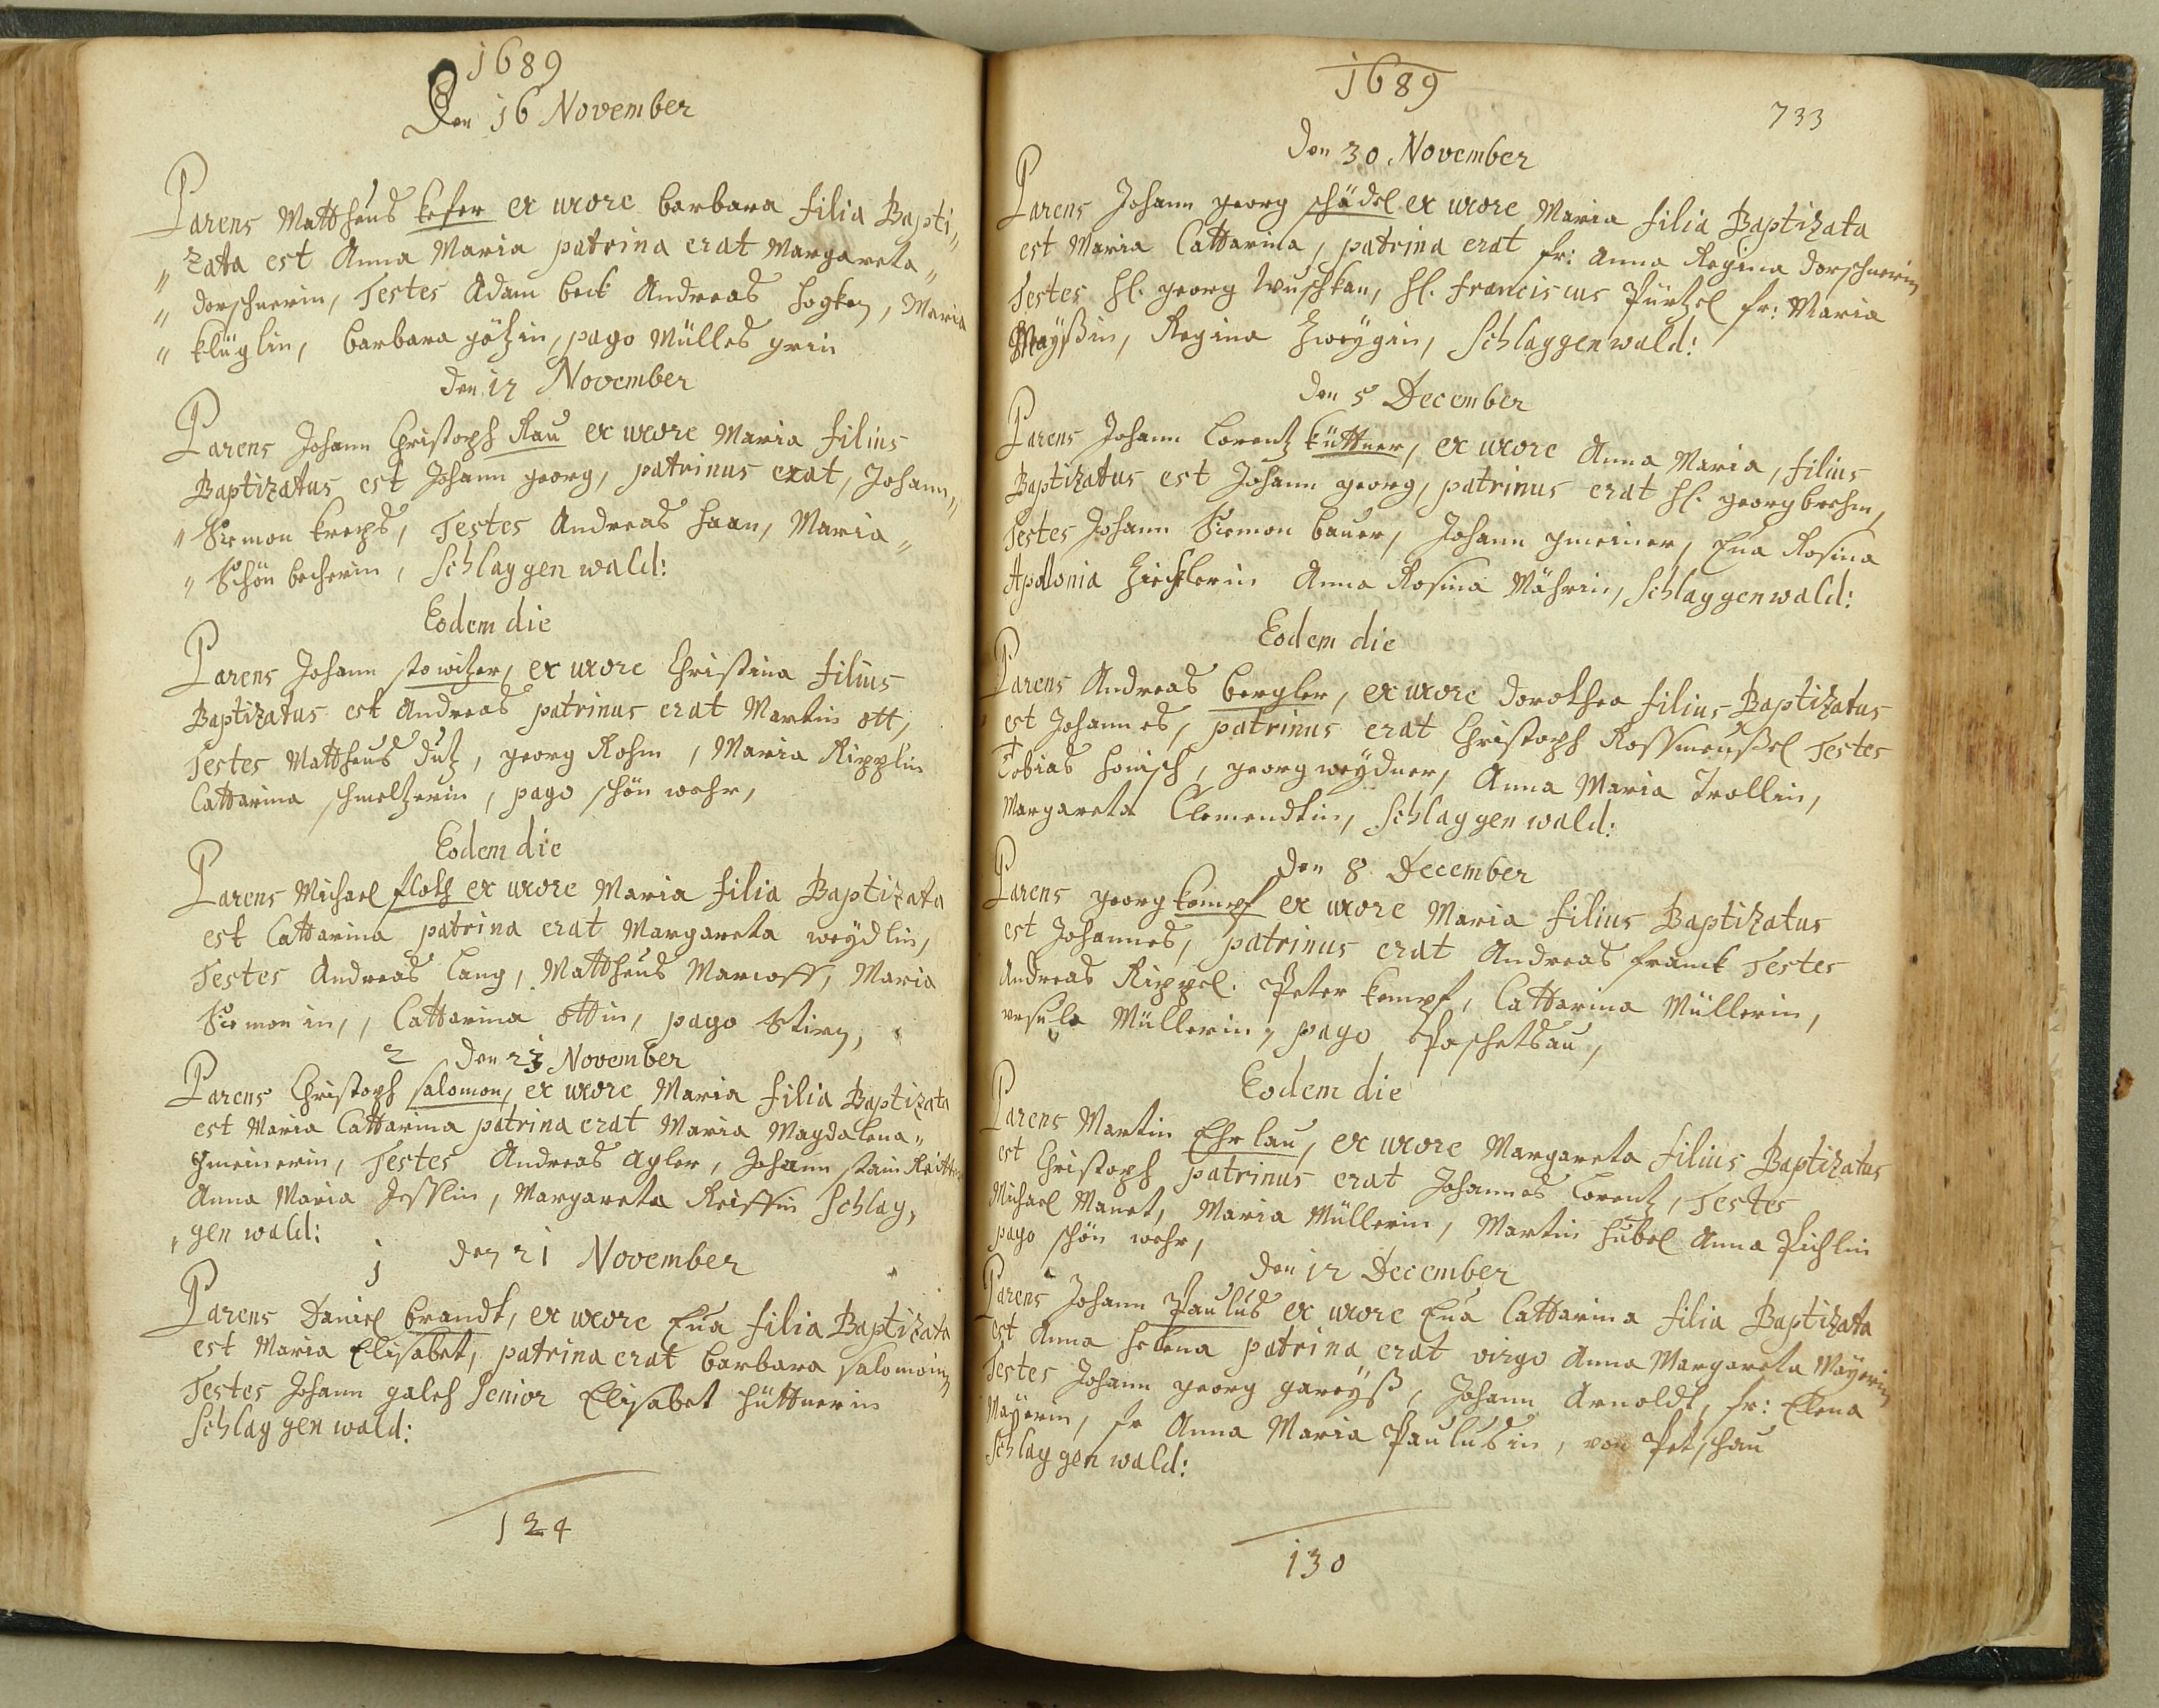 1689
Den 16 November
Parens Mattheus kefer ex uxore barbara filia Bapti„
„ zata est Anna Maria patrina erat Margareta „
„ dorschnerin, Testes Adam beck Andreas hogken, Maria
„ klüglin, barbara götzin, pago Mülles grin
den 17 November
Parens Johann Christoph Rau ex uxore Maria filius
Baptizatus est Johann georg, patrinus erat, Johann „
„ Siemon kreps, Testes Andreas haan, Maria „
„ Schön becherin, Schlaggen wald:
Eodem die
Parens Johann stowitzer, ex uxore Christina filius
Baptizatus est Andreas patrinus erat Martin ott,
Testes Mattheus dutz, georg Rohm, Maria Ripplin
Cattarina schmeltzerin, pago schön wehr,
Eodem die
Parens Michael floth ex uxore Maria filia Baptizata
est Cattarina patrina erat Margareta weydlin,
Testes Andreas lang, Mattheus, Maria
Siemonin,, Cattarina ottin, pago Stirn,
2 den 23 November
Parens Christoph salomon, ex uxore Maria filia Baptizata
est Maria Cattarina patrina erat Maria Magdalena „
gmeinerin, Testes Andreas agler, Johann stain
Anna Maria Jesslin, Margareta Reissin Schlag,
, gen wald:
j den 21 November
Parens Daniel brandt, ex uxore Eua filia Baptizata
est Maria Elisabet, patrina erat barbara salomoin,
Testes Johann galch Senior Elisabet hüttnerin
Schlaggen wald:
124
1689
733
den 30 November
Parens Johann georg schädel ex uxore Maria filia Baptizata
est Maria Cattarina, patrina erat fr: Anna Regina dorschnerin
Testes hl. georg Wuschkan, hl. franciscus Pürtzel fr: Maria
Mayßin, Regina Zweygin, Schlaggenwald:
den 5 December
Parens Johann Lorentz küttner, ex uxore Anna Maria, filius
Baptizatus est Johann georg, patrinus erat hl. georg brehm,
Testes Johann Siemon bauer, Johann gmeiner, Eua Rosina
Apollonia Ziecklerin Anna Rosina Mährin, Schlaggenwald:
Eodem die
Parens Andreas bergler, ex uxore dorothea filius Baptizatus
est Johannes, patrinus erat Christoph Rossmeußel Testes
Tobias honisch, georg weydner, Anna Maria Trollin,
Margareta Clemendtin, Schlaggen wald:
den 8 December
Parens georg kempf ex uxore Maria filius Baptizatus
est Johannes, patrinus erat Andreas franck Testes
Andreas Rippel. Peter kempf, Cattarina Müllerin,
vrsula Müllerin, pago Poschetzau,
Eodem die
Parens Martin Ehrlau, ex uxore Margareta filius Baptizatus
est Christoph patrinus erat Johannes Lorentz, Testes
Michael Manet, Maria Müllerin, Martin hübel Anna Pichlin
pago schön wehr,
den 17 December
Parens Johann Paulus ex uxore Eua Cattarina filia Baptizata
est Anna helena patrina erat virgo Anna Margareta Mayerin
Testes Johann georg gareyß, Johann Arnoldt, fr: Elena
Mayerin, fr Anna Maria Paulusin, von Petschau
Schlaggen wald:
130